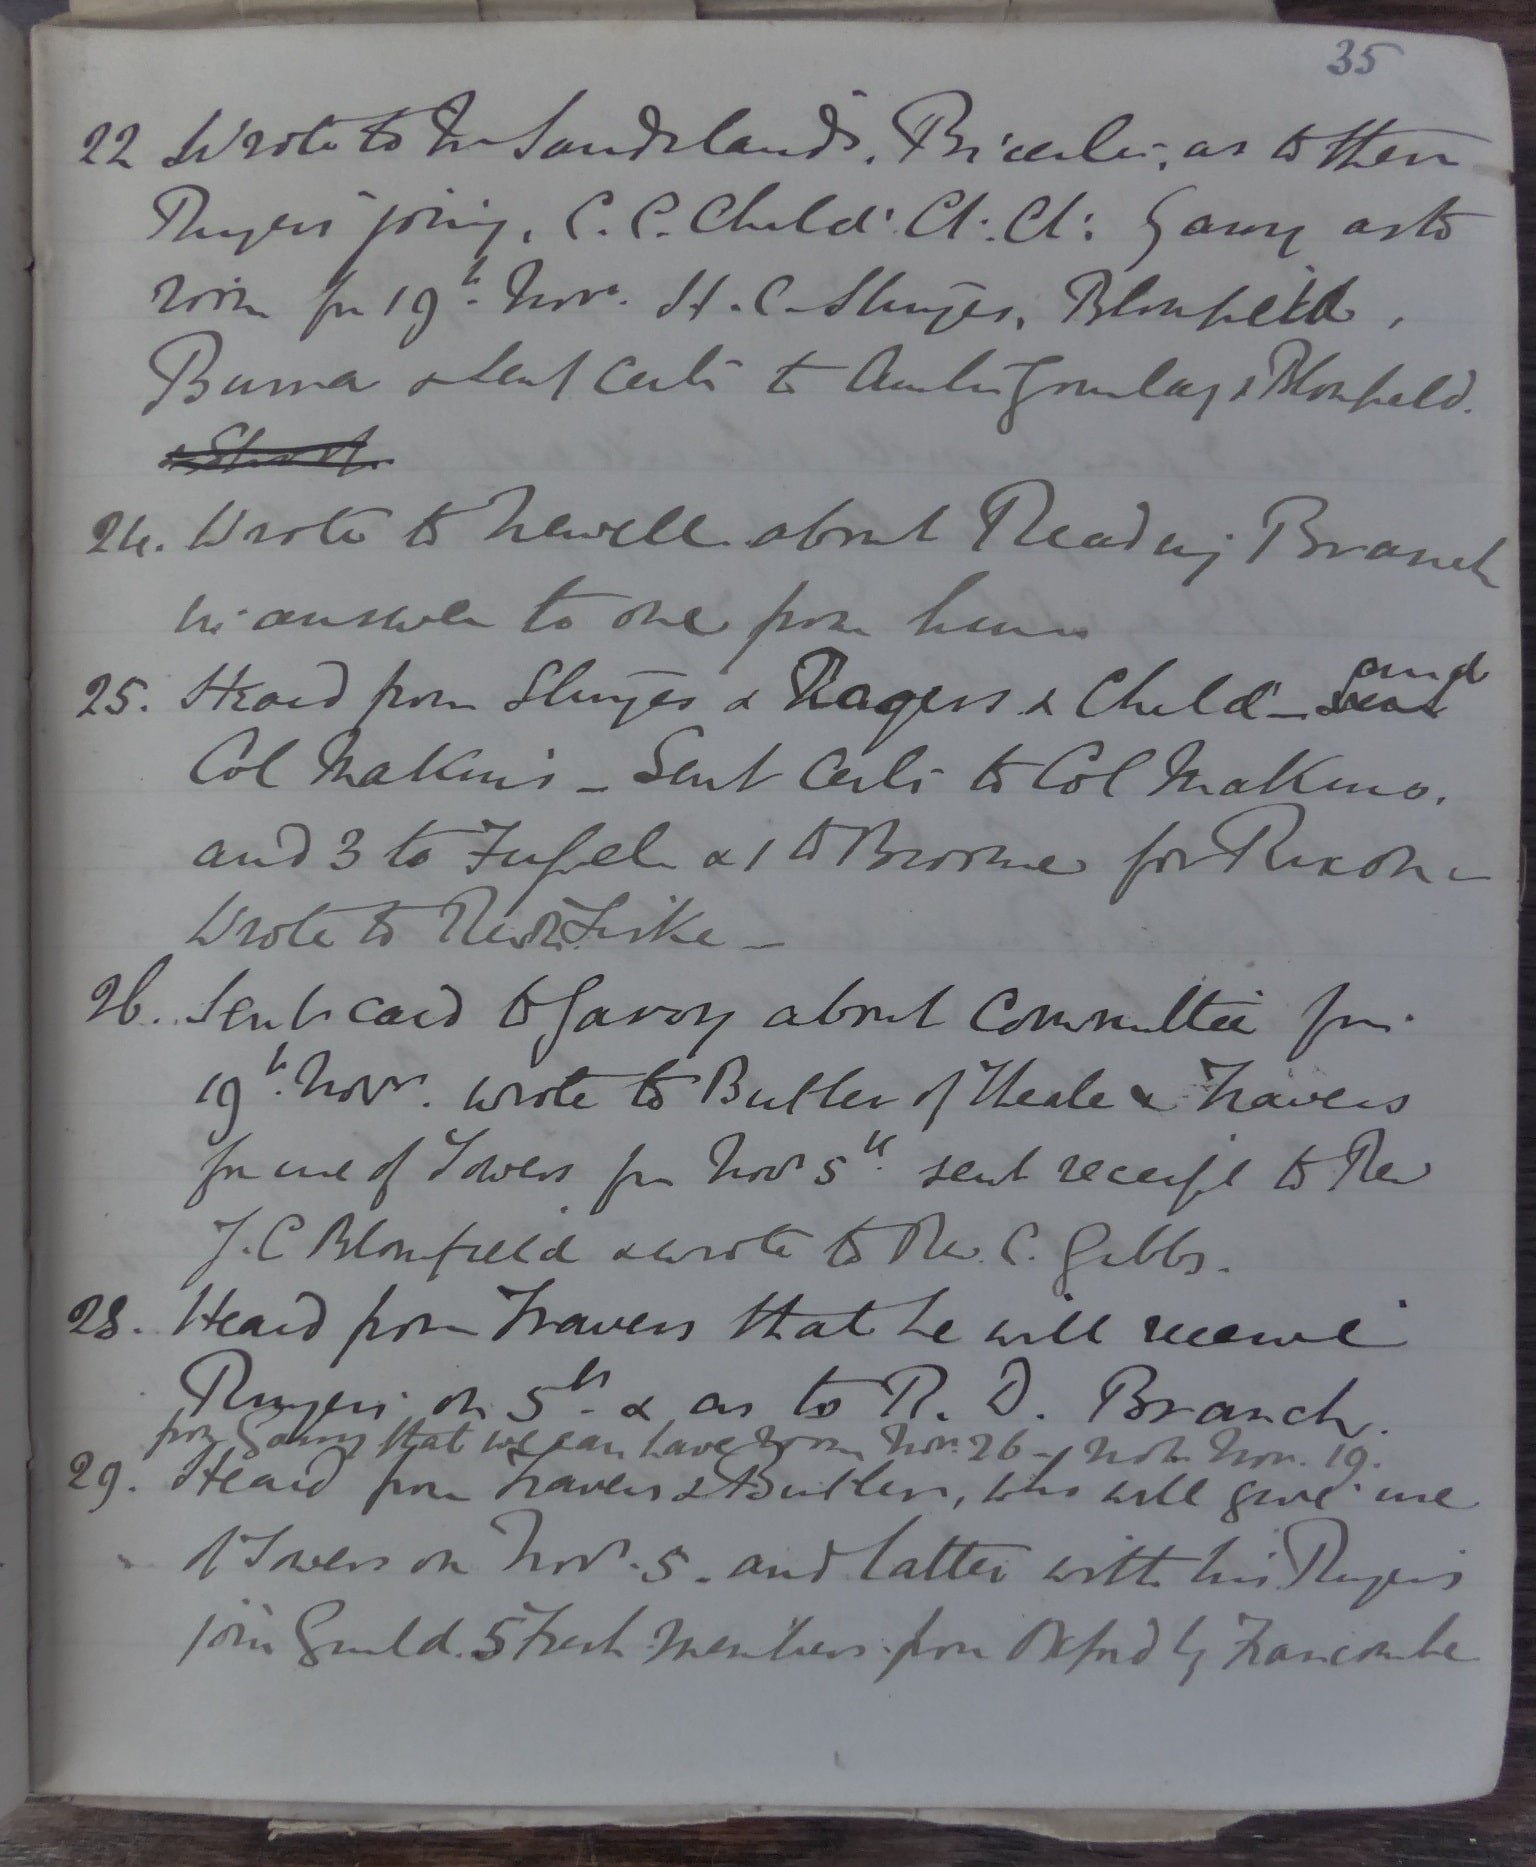 35
22 Wrote to Mr Sandilands, Brice, as to their
Ringers joining, C. C. Child: Ch: Ch: Garry as to
room for 19th. Novr. H. C. Sturges, Blomfield,
Burra & sent certs to Gourlay & Blomfield.
24. Wrote to Newell about Reading Branch
in answer to one from him
25. Heard from Sturges & Rogers & Child – and
Col Makins – Sent certs to Col Makins.
and 3 to & 1 to Broome for Rixon –
Wrote to Rev –
26. Sent card to Savory about Committee for
19th. Novr. wrote to Butler of Theale & Travers
for use of Towers for Novr 5th. sent receipt to Rev
J. C Blomfield & wrote to Rev. C. Gibbs.
28. Heard from Travers that he will receive
Ringers on 5th. & as to R. D. Branch.
from that we can have room Nov. 26 – not Nov. 19.
29. Heard from Travers & Butler, who will give use
of Towers on Novr. 5. and latter with his Ringers
join Guild. 5 Fresh members from Oxford by Francombe